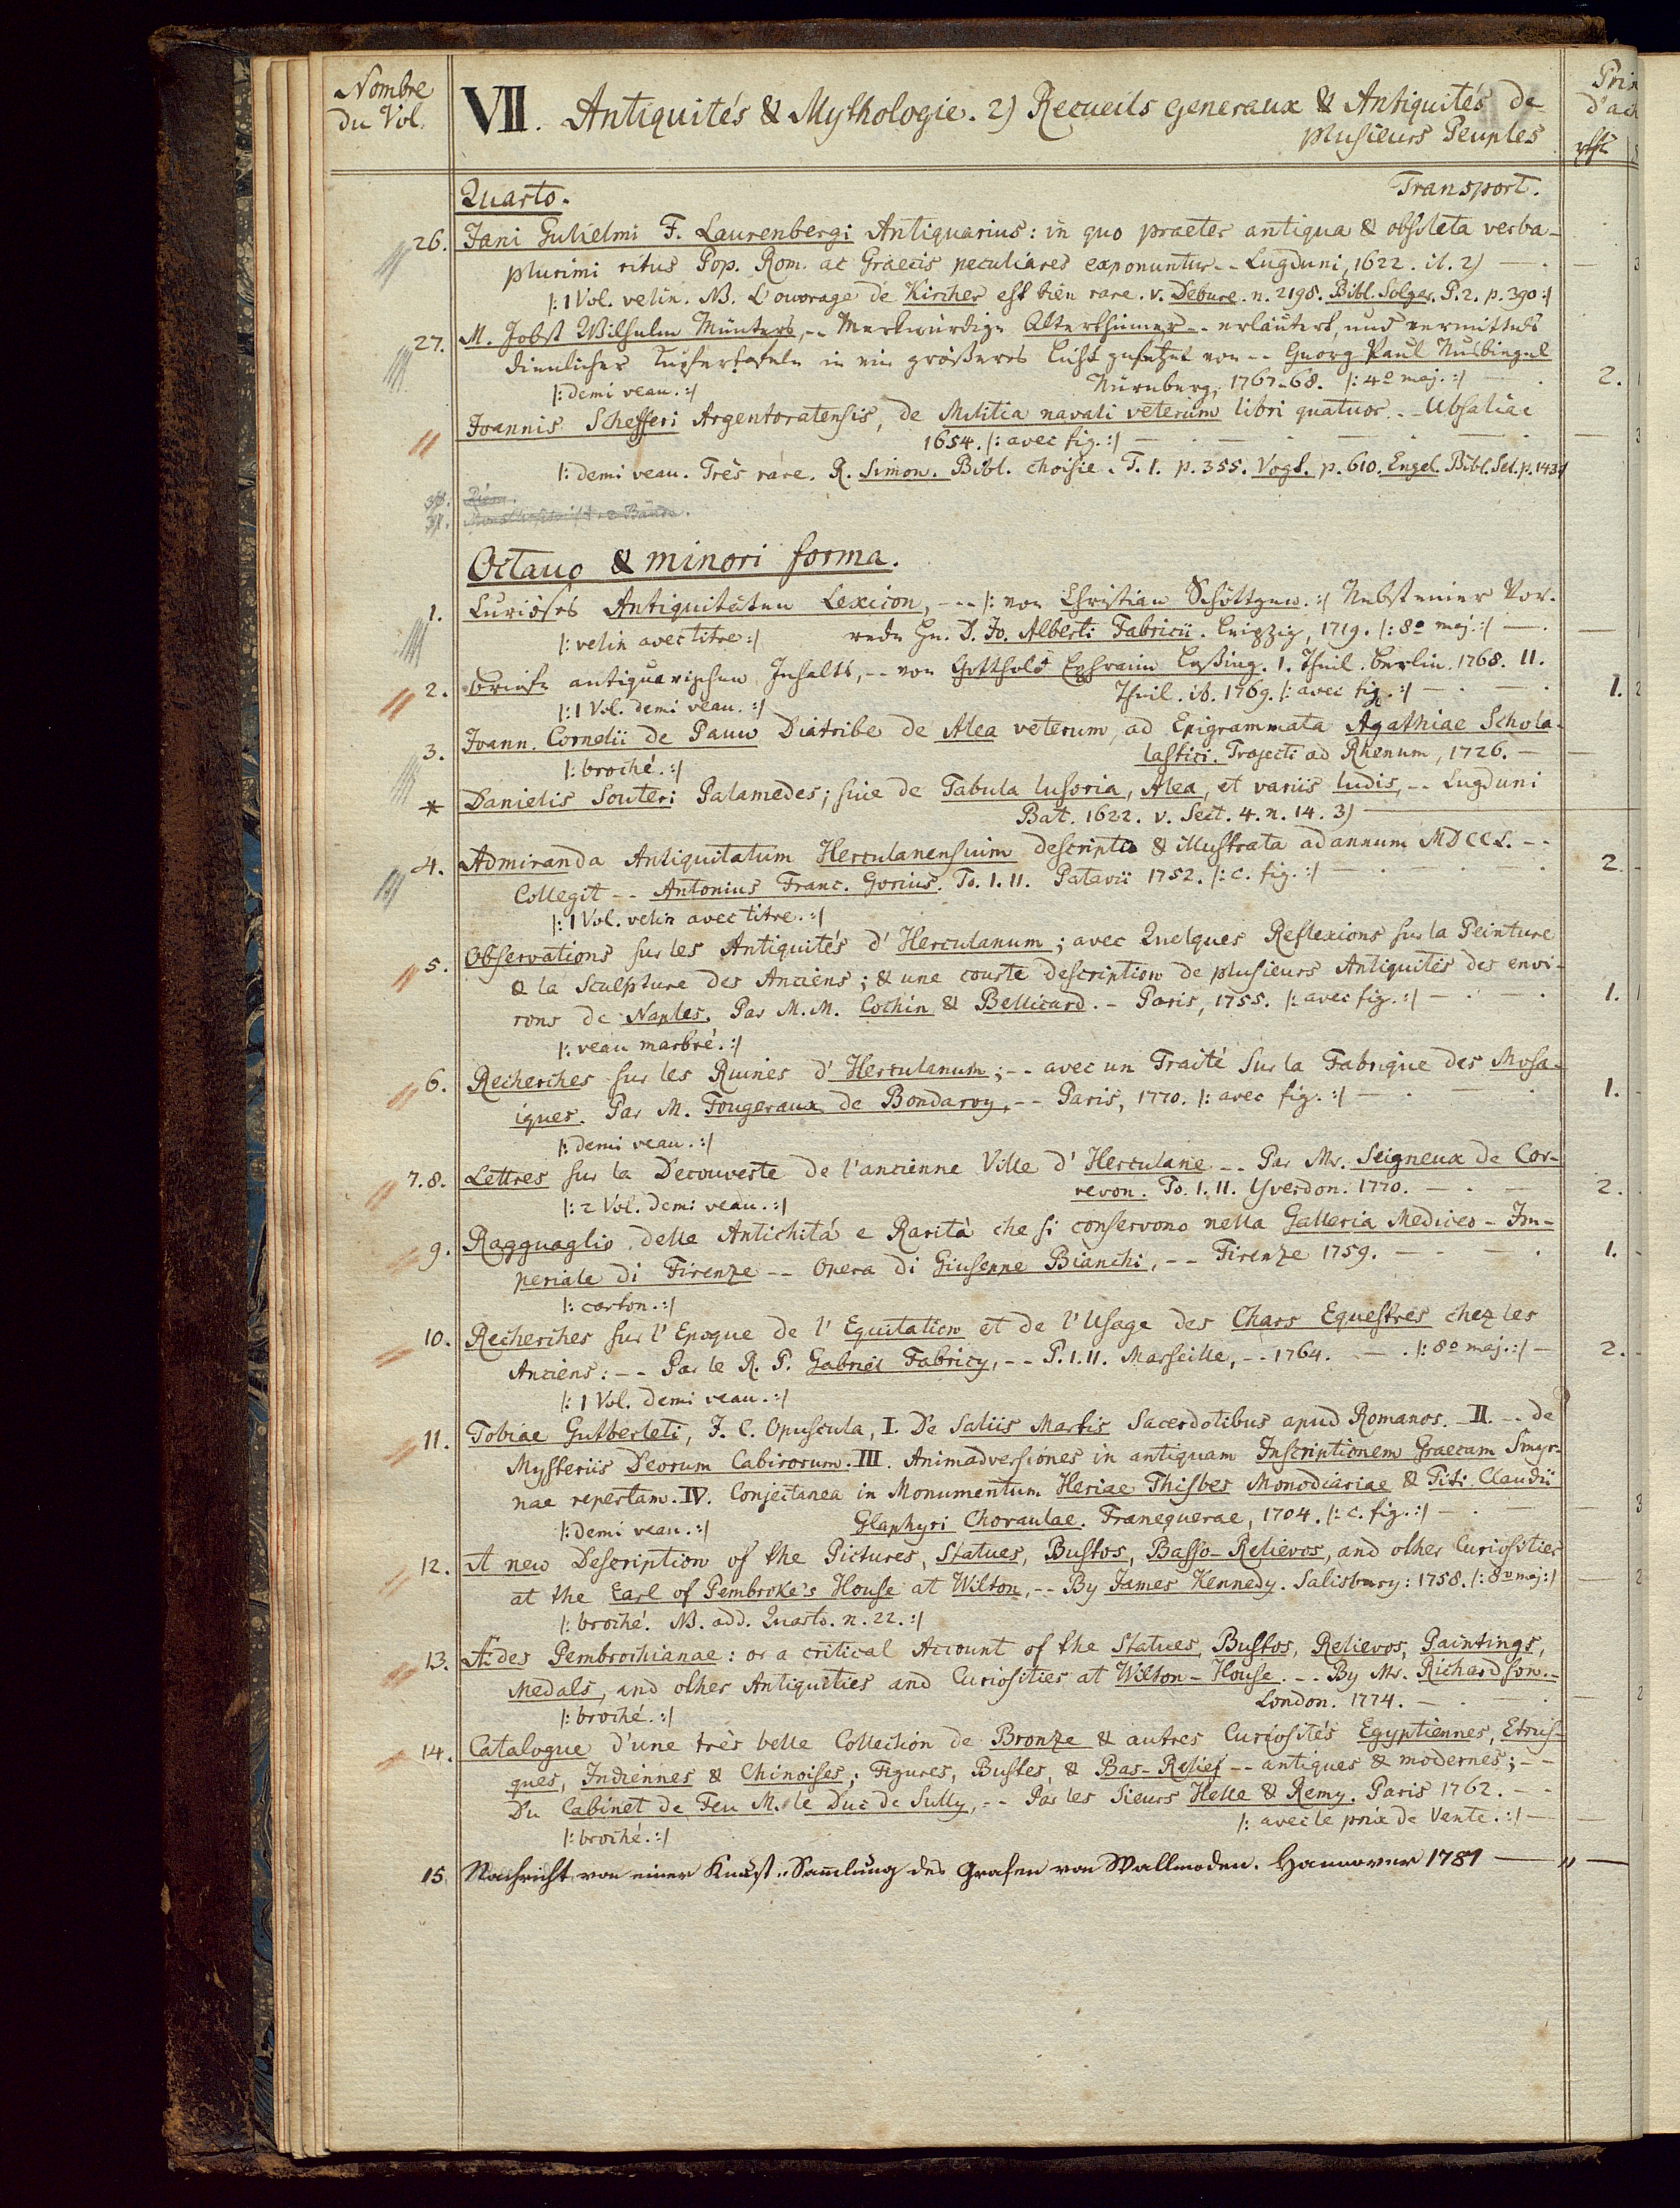 Nombre
du Vol.
VII. Antiquités & Mythologie. 2) Recueils generaux & Antiquités de
plusieurs Peuples
Prix
d'ach
rthl
Quarto. Transport.
26. Jani Gulielmi F. Laurenbergi Antiquarius: in quo praeter antiqua & obsoleta verba -
plurimi ritus Pop. Rom. ac Graecis peculiares exponuntur -- Lugduni, 1622. it. 2) — . — 3
|: 1 Vol. velin. NB. L'ouvrage de Kircher est bien rare. v. Debure. n. 2198. Bibl. Solger. P. 2. p. 390 :|
27. M. Jobst Wilhelm Münters, -- Merkwürdige Alterthümer -- erläutert, und vermittels
dienlicher Kupfertafeln in ein größeres Licht gesetzet von -- Georg Paul Nusbiegel
|: demi veau. :| Nürnberg, 1767-68. |: 4o maj. :| — . 2.
Joannis Schefferi Argentoratensis, de Militia navali veterum libri quatuor. -- Ubsaliae
1654. |: avec fig. :| — . — . — . — . — 3
|: demi veau. Très rare. R. Simon. Bibl. choisie. T. 1. p. 355. Vogt. p. 610. Engel. Bibl. Sel. p. 143 :|
Octavo & minori forma.
1. Curiöses Antiquitäten Lexicon, --- |: von Christian Schöttgen. :| Nebst einer Vor-
|: velin avec titre :| rede Hn. D. Jo. Alberti Fabricii. Leipzig, 1719. |: 8o maj. :| — .
2. Briefe antiquarischen Inhalts, -- von Gotthold Ephraim Leßing. 1. Theil. Berlin. 1768. II.
|: 1 Vol. demi veau. :| Theil. ib. 1769. |: avec fig. :| — . — . 1. 2
3. Joann. Cornelii de Pauw Diatribe de Alea veterum, ad Epigrammata Agathiae Schola-
|: broché. :| lastici. Trajecti ad Rhenum, 1726. —
* Danielis Souteri Palamedes; sive de Tabula lusoria, Alea, et variis ludis, -- Lugduni
Bat. 1622. v. Sect. 4. n. 14. 3)
4. Admiranda Antiquitatum Herculanensium descripta & illustrata ad annum MDCCL. --
Collegit -- Antonius Franc. Gorius. To. I. II. Patavii 1752. |: c. fig. :| — . — . — . 2. -
|: 1 Vol. velin avec titre. :|
5. Observations sur les Antiquités d'Herculanum; avec Quelques Reflexions sur la Peinture
& la Sculpture des Anciens; & une courte description de plusieurs Antiquités des envi-
rons de Naples. Par M. M. Cochin & Bellicard. - Paris, 1755. |: avec fig. :| — . — . 1. 1
|: veau marbré. :|
6. Recherches sur les Ruines d'Herculanum; -- avec un Traité sur la Fabrique des Mosa-
iques. Par M. Fougeraux de Bondaroy, -- Paris, 1770. |: avec fig. :| — . — . 1. -
|: demi veau. :|
7.8. Lettres sur la Decouverte de l'ancienne Ville d'Herculane -- Par Mr. Seigneux de Cor-
|: 2 Vol. demi veau. :| revon. To. I. II. Yverdon. 1770. — . — 2.
9. Ragguaglio delle Antichità e Rarità che si conservono nella Galleria Mediceo - Im-
periale di Firenze -- Opera di Giuseppe Bianchi, -- Firenze 1759. — - — . 1. -
|: carton. :|
10. Recherches sur l'Epoque de l'Equitation et de l'Usage des Chars Equestres chez les
Anciens: -- Par le R. P. Gabriel Fabricy, -- P. I. II. Marseille, -- 1764. — . |: 8o maj. :| — 2. -
|: 1 Vol. demi veau. :|
11. Tobiae Gutberleti, J. C. Opuscula, I. De Saliis Martis Sacerdotibus apud Romanos. II. -- de
Mysteriis Deorum Cabirorum. III. Animadversiones in antiquam Inscriptionem Graecam Smyr-
nae repertam. IV. Conjectanea in Monumentum Heriae Thisbes Monodiariae & Titi Claudii
|: demi veau. :| Glaphyri Choraulae. Franequerae, 1704. |: c. fig. :| — . — — 3
12. A new Description of the Pictures, Statues, Bustos, Basso-Relievos, and other Curiosities
at the Earl of Pembroke's House at Wilton, -- By James Kennedy. Salisbury: 1758. |: 8o maj :| — 2
|: broché. NB. add. Quarto. n. 22. :|
13. Ædes Pembrochianae: or a critical Account of the Statues, Bustos, Relievos, Paintings,
Medals, and other Antiquities and Curiosities at Wilton-House. -- By Mr. Richardson. -
|: broché. :| London. 1774. — . — . — 2
14. Catalogue d'une très belle Collection de Bronze & autres Curiosités Egyptiennes, Etrus-
ques, Indiennes & Chinoises; Figures, Bustes, & Bas-Relief -- antiques & modernes; --
Du Cabinet de Feu M. le Duc de Sully, -- Par les Sieurs Helle & Remy. Paris 1762. --
|: broché. :| |: avec le prix de Vente. :| — — 1
15. Nachricht von einer Kunst-Samlung des Grafen von Wallmoden. Hannover 1781 — „ —